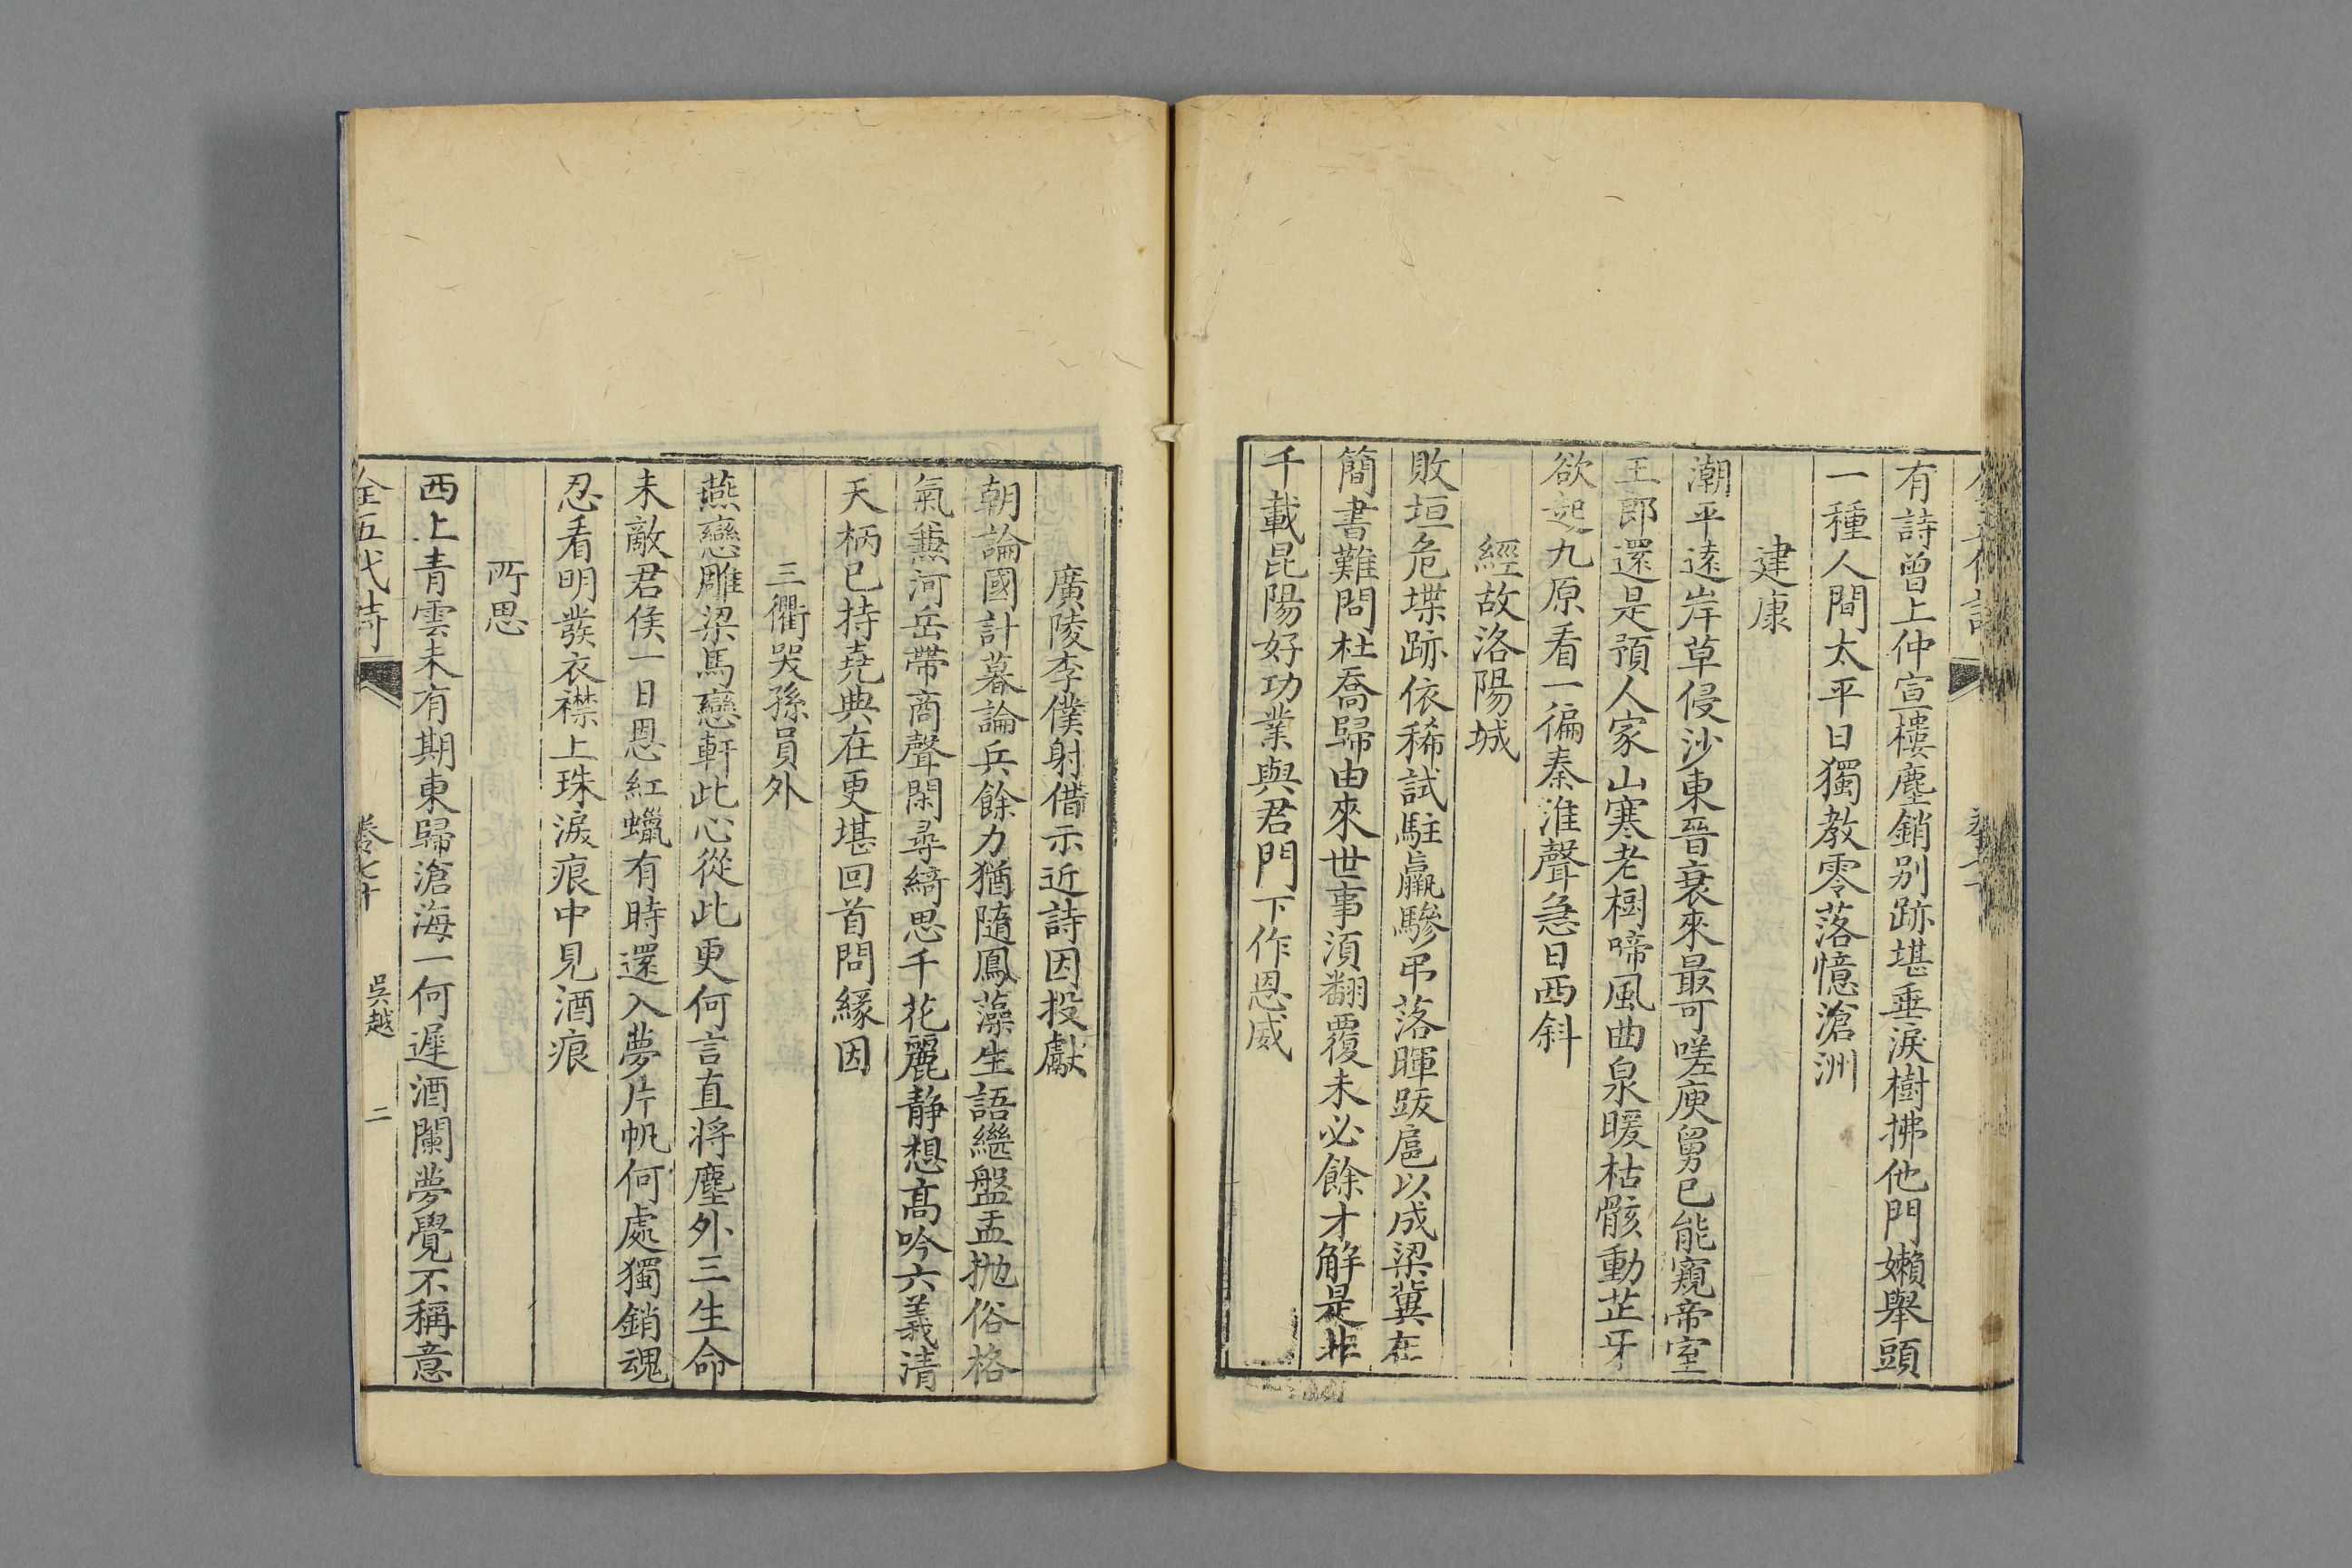 有詩曾上仲宣樓塵銷别跡堪垂淚樹拂他門嬾舉頭
一種人間太平日獨教零落憶滄洲
建康
潮平遠岸草侵沙東晉衰來最可嗟庾舅已能窺帝室
王郎還是預人家山寒老樹啼風曲泉暖枯骸動芷牙
欲起九原看一徧秦淮聲急日西斜
經故洛陽城
敗垣危堞跡依稀試駐羸驂弔落暉跋扈以成梁冀在
簡書難問杜喬歸由來世事須翻覆未必餘才解是非
千載昆陽好功業與君門下作恩威
廣陵李僕射借示近詩因投獻
朝論國計暮論兵餘力猶隨鳳藻生語繼盤盂抛俗格
氣兼河岳帶商聲閑尋綺思千花麗靜想高吟六義清
天柄已持堯典在更堪回首問緣因
三衢哭孫員外
燕戀雕梁馬戀軒此心從此更何言直將塵外三生命
未敵君侯一日恩紅蠟有時還入夢片帆何處獨銷魂
忍看明發衣襟上珠淚痕中見酒痕
所思
西上青雲未有期東歸滄海一何遲酒闌夢覺不稱意
全五代詩 卷七十 吳越 二